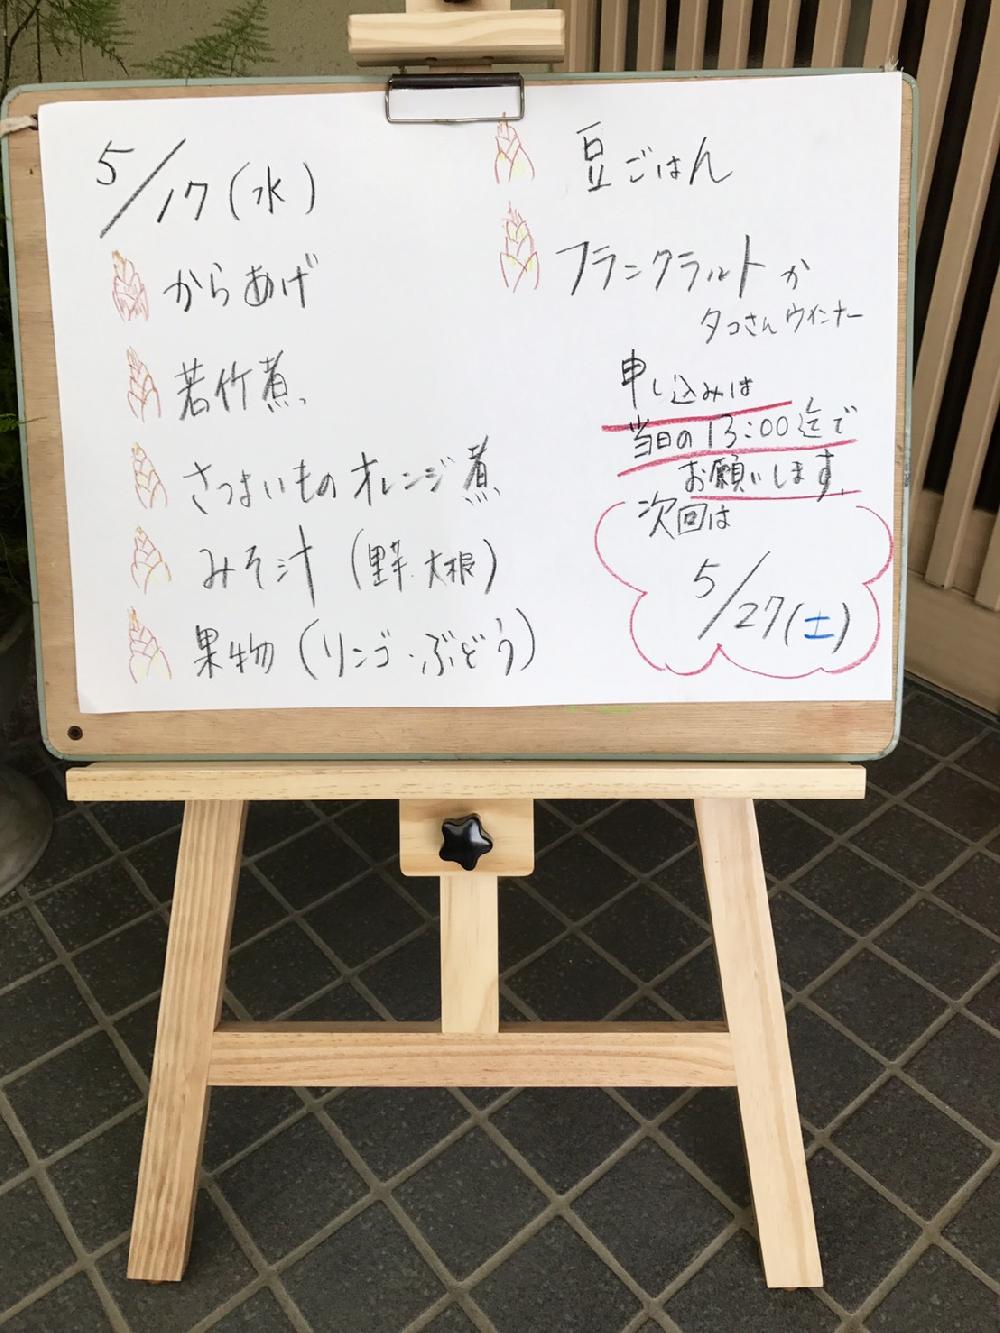 5/17(水)
からあげ
若竹煮
さつまいものオレンジ煮
みそ汁(里芋.大根)
果物(リンゴ・ぶどう)
豆ごはん
フランクフルトか
タコさんウインナー
申し込みは
当日の13:00迄で
お願いします。
次回は
5/27(土)